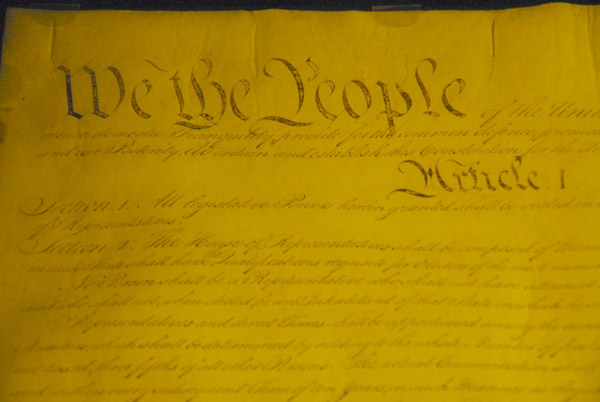 We the People of the Unit
insure domestic Tranquility, provide for the common defence, promote
and our Posterity, do ordain and establish this Constitution for the Un
Article. I.
Section. 1. All legislative Powers herein granted shall be vested in a
of Representatives.
Section. 2. The House of Representatives shall be composed of Mem
in each State shall have the Qualifications requisite for Electors of the most numerous
No Person shall be a Representative who shall not have attained
and who shall not, when elected, be an Inhabitant of that State in which he
Representatives and direct Taxes shall be apportioned among the several
Numbers, which shall be determined by adding to the whole Number of free
not taxed, three fifths of all other Persons. The actual Enumeration shall
and within every subsequent Term of ten Years, in such Manner as